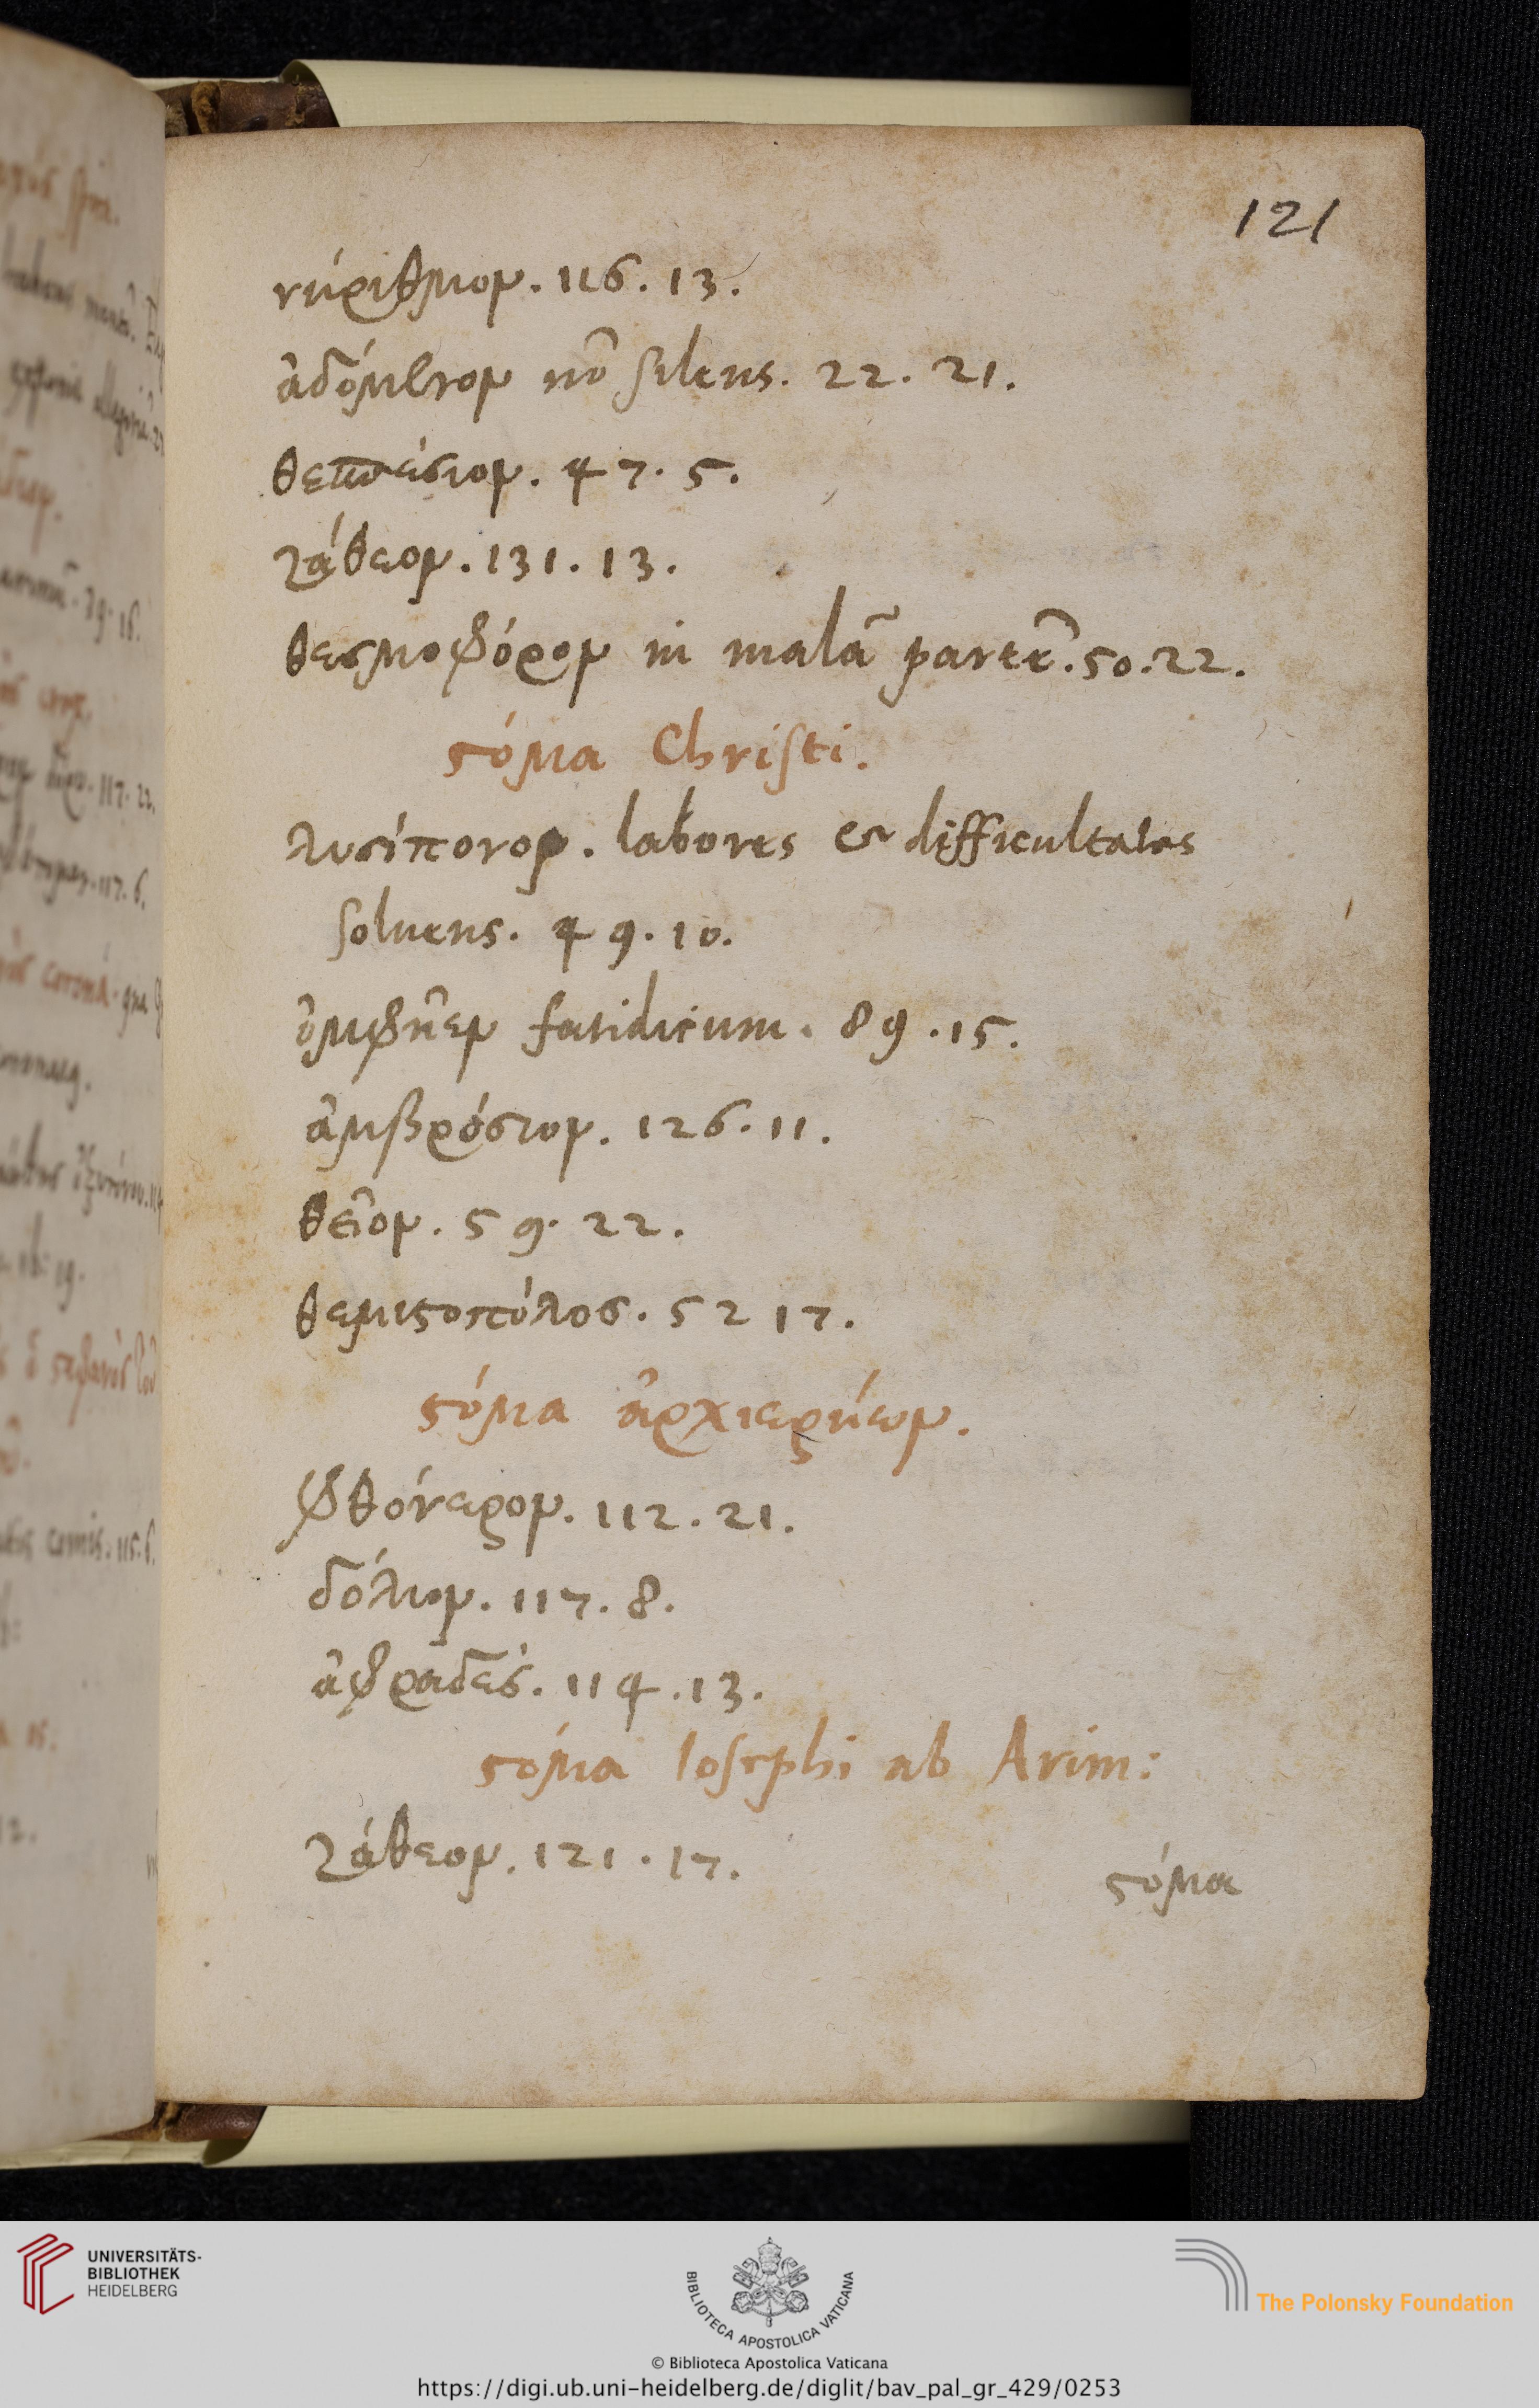 121
νήριθμον. 116. 13.
ἀδόμητον nō silens. 22. 21.
θεσπέσιον. 47. 5.
ζάθεον. 131. 13.
θεσμοφόρον in malā partē. 50. 22.
ϛόμα Christi.
λυσίπονον. labores & difficultates
soluens. 49. 10.
ὀμφῆεν fatidicum. 89. 15.
ἀμβρόσιον. 126. 11.
θεῖον. 59. 22.
θεμιϛοπόλος. 52 17.
ϛόμα ἀρχιερήων.
φθόνερον. 112. 21.
δόλιον. 117. 8.
ἀφραδές. 114. 13.
ϛόμα Iosephi ab Arim:
ζάθεον. 121. 17.
ϛόμα
UNIVERSITÄTS-
BIBLIOTHEK
HEIDELBERG
BIBLIOTECA APOSTOLICA VATICANA
The Polonsky Foundation
© Biblioteca Apostolica Vaticana
https://digi.ub.uni-heidelberg.de/diglit/bav_pal_gr_429/0253